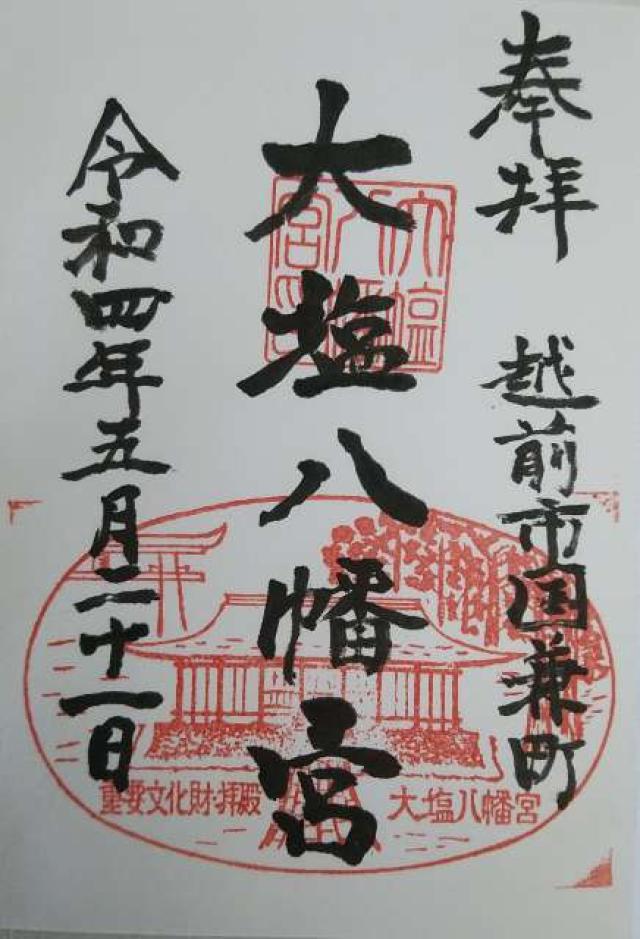 奉拝 越前市国兼町
大塩八幡宮
大塩八幡宮
令和四年五月二十一日
重要文化財・拝殿
大塩八幡宮